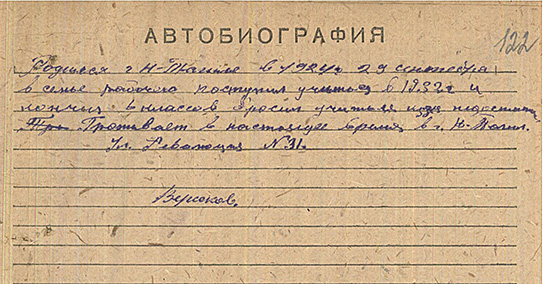 АВТОБИОГРАФИЯ
122
Родился г Н-Тагиле в 1924г 29 сентября
в семье рабочего поступил учится в 1932г и
кончил 6 классов бросил учиться из за недостат
Про Проживает в настоящее время в г. Н-Тагил.
Ул. Революция №31.